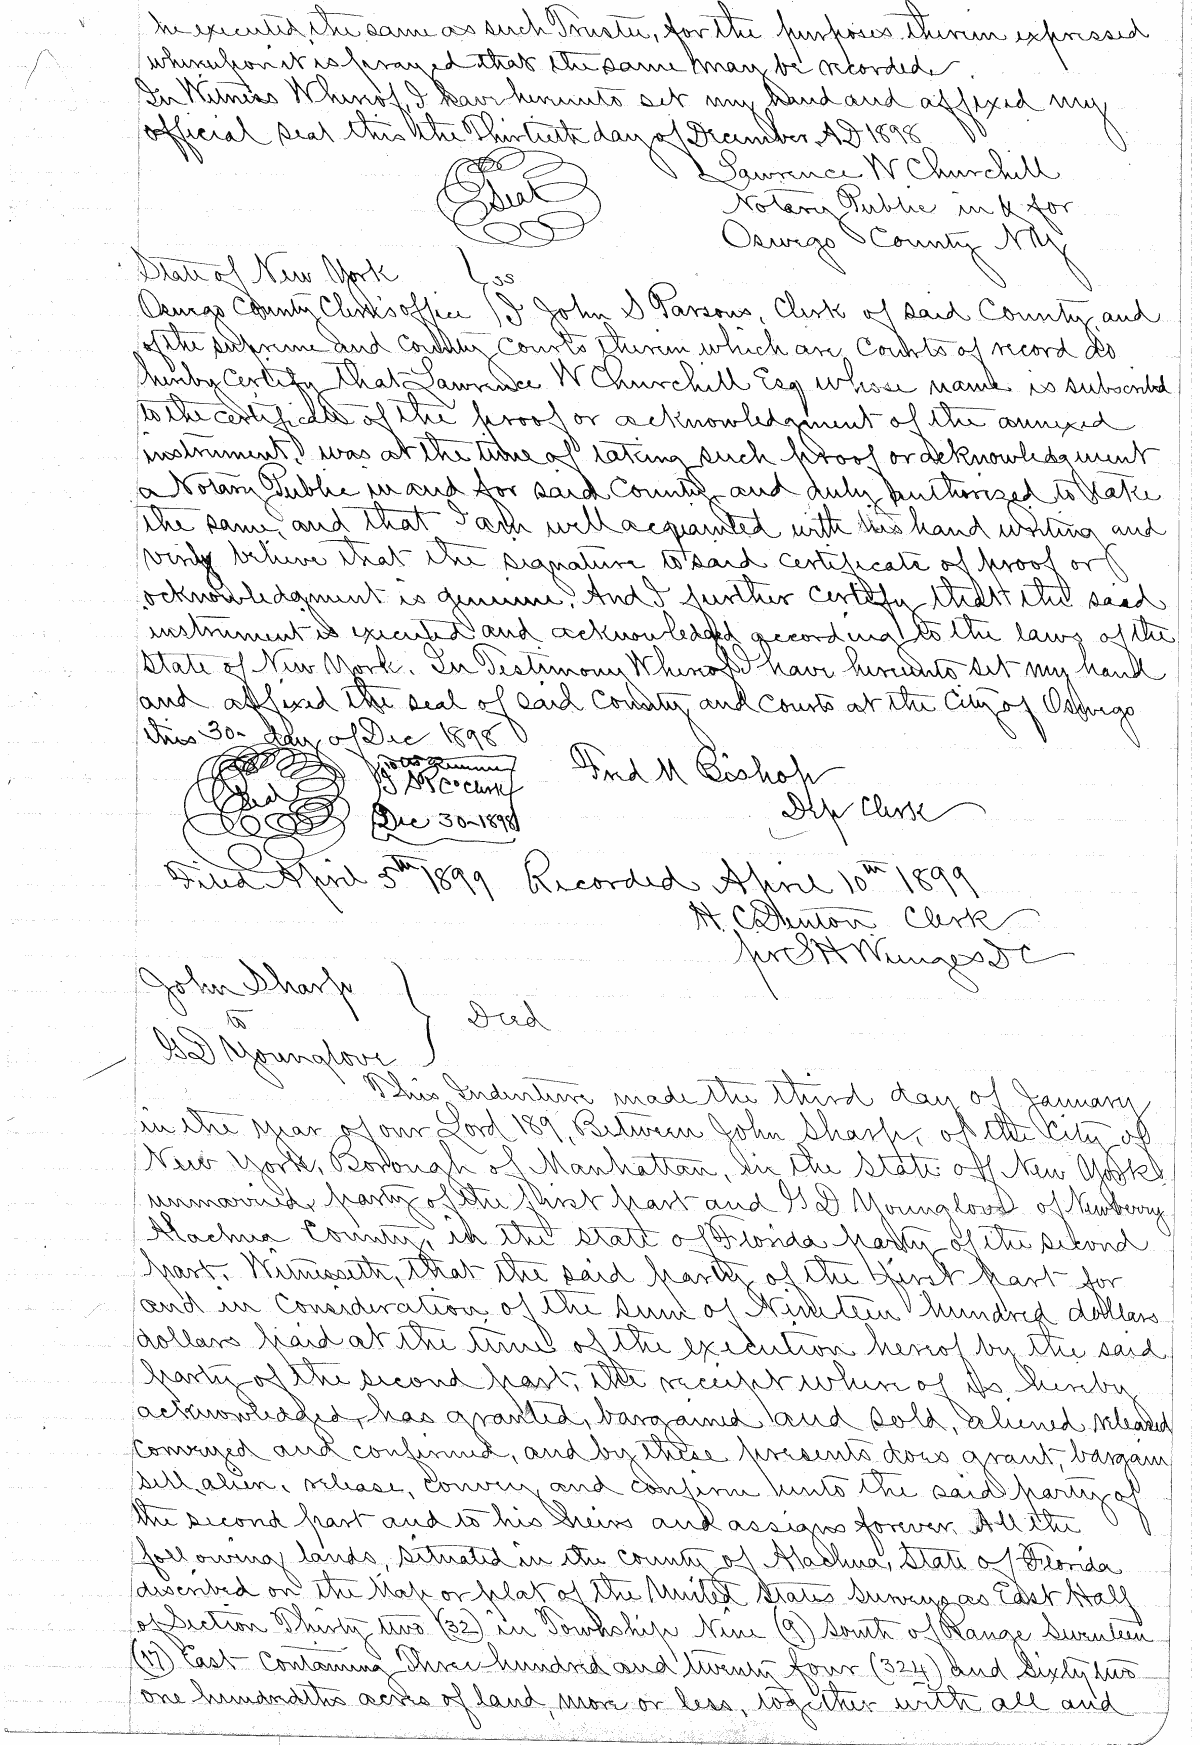 he executed the same as such Trustee, for the purposes therein expressed
whereupon it is prayed that the same may be recorded.
In Witness Whereof, I have hereunto set my hand and affixed my
official seal this the Thirtieth day of December AD 1898
Lawrence W Churchill
Seal
Notary Public in & for
Oswego County NY
State of New York } ss
Oswego County Clerk's office } I John S Parsons, Clerk of said County, and
of the supreme and County Courts therein which are Courts of record do
hereby certify that Lawrence W Churchill Esq whose name is subscribed
to the certificate of the proof or acknowledgment of the annexed
instrument, was at the time of taking such proof or acknowledgment
a Notary Public in and for said County and duly authorized to take
the same, and that I am well acquainted with his hand writing and
verily believe that the signature to said certificate of proof or
acknowledgment is genuine. And I further certify that the said
instrument is executed and acknowledged according to the laws of the
State of New York. In Testimony Whereof I have hereunto set my hand
and affixed the seal of said County and Courts at the City of Oswego
this 30- day of Dec 1898
Seal
Co Clerk
Dec 30-1898
Fred M Bishop
Dep Clerk
Filed April 5th 1899 Recorded April 10th 1899
H. C. Denton Clerk
per S H Wienges D C
John Sharp
to } Deed
G D Younglove
This Indenture made the third day of January
in the year of our Lord 189, Between John Sharp, of the City of
New York, Borough of Manhattan, in the State of New York,
unmarried, party of the first part and G D Younglove of Newberry
Alachua County, in the state of Florida party of the second
part. Witnesseth, that the said party of the first part for
and in consideration of the sum of Nineteen hundred dollars
dollars paid at the time of the execution hereof by the said
party of the second part, the receipt where of is hereby
acknowledged, has granted, bargained and sold, aliened released
conveyed and confirmed, and by these presents does grant, bargain
sell, alien, release, convey and confirm unto the said party of
the second part and to his heirs and assigns forever. All the
following lands, situated in the county of Alachua, State of Florida
discribed on the Map or plat of the United States Surveys as East Half
of Section Thirty two (32) in Township Nine (9) South of Range Seventeen
(17) East Containing Three hundred and twenty four (324) and Sixty two
one hundredths acres of land, more or less, together with all and